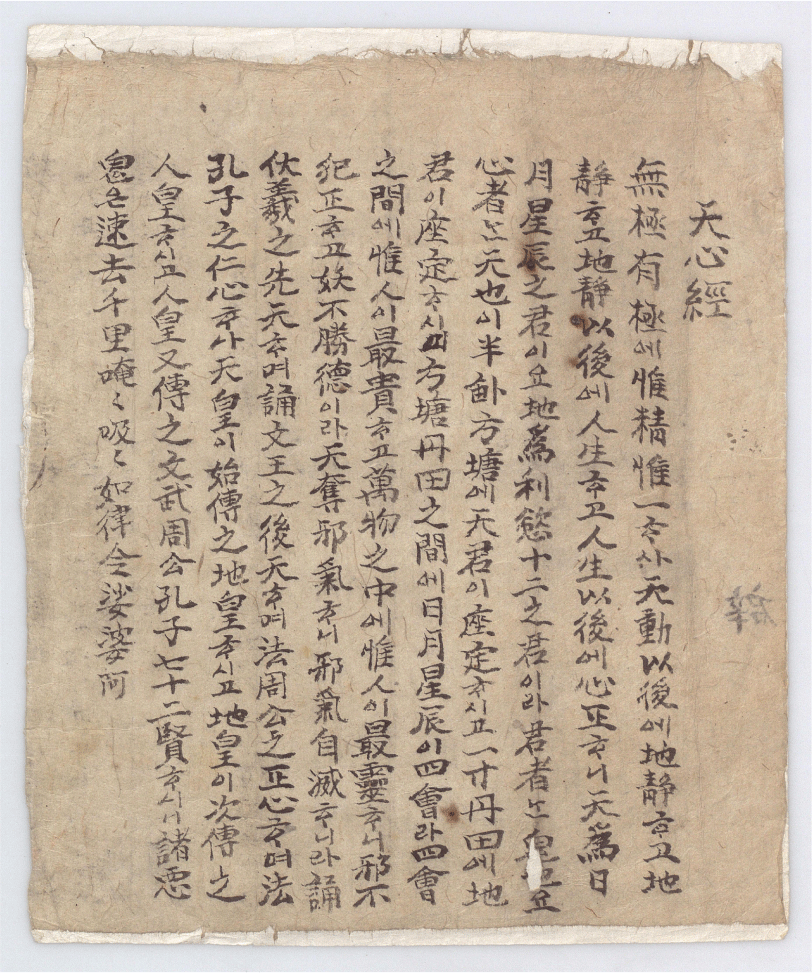 天心經
無極有極에惟精惟一ᄒᆞ사天動以後에地靜ᄒᆞ고地
靜ᄒᆞ고地靜以後에人生ᄒᆞ고人生以後에心正ᄒᆞ니天爲日
月星辰之君이요地爲利慾十二之君이라君者ᄂᆞᆫ요
心者ᄂᆞᆫ天也이半畝方塘에天君이座定ᄒᆞ시고一寸丹田에地
君이座定ᄒᆞ시며方塘丹田之間에日月星辰이四會라四會
之間에惟人이最貴ᄒᆞ고萬物之中에惟人이最靈ᄒᆞ니邪不
犯正ᄒᆞ고妖不勝德이라天奪邪氣ᄒᆞ니邪氣自滅ᄒᆞ니라誦
伏羲之先天ᄒᆞ며誦文王之後天ᄒᆞ며法周公之正心ᄒᆞ며法
孔子之仁心ᄒᆞ사天皇이始傳之地皇ᄒᆞ시고地皇이次傳之
人皇ᄒᆞ시고人皇又傳之文武周公孔子七十二賢ᄒᆞ시니諸惡
鬼ᄂᆞᆫ速去千里唵〻吸〻如律令娑婆阿